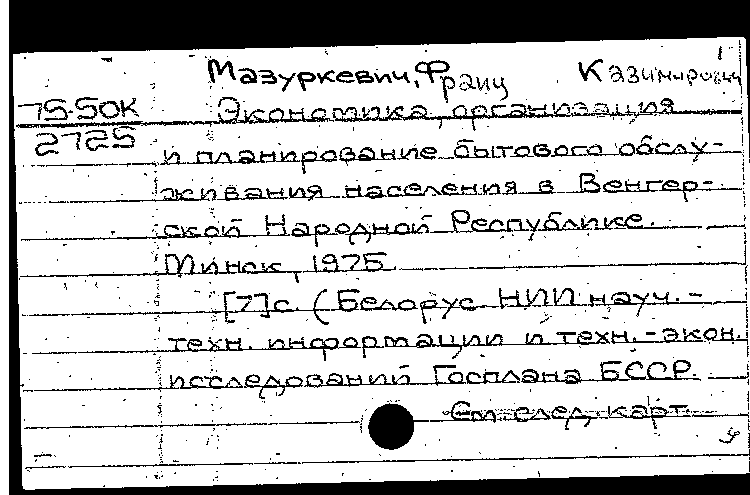 Мазуркевич, Франц Казимирович
75-50к Экономика, организация
2725 и планирование бытового обслу-
живания населения в Венгер-
ской Народной Республике.
Минск, 1975.
[7]с. (Белорус. НИИ науч.-
техн. информации и техн.-экон.
исследований Госплана БССР.
См. след. карт.